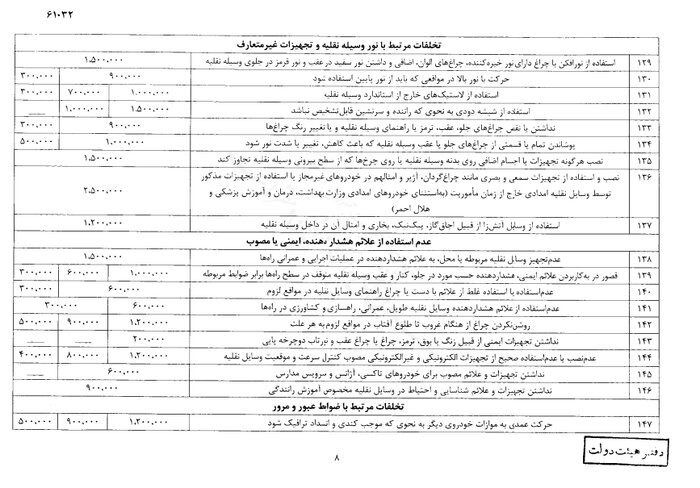 ۶۱۰۳۲
تخلفات مرتبط با نور وسیله نقلیه و تجهیزات غیرمتعارف
۱۲۹ استفاده از نورافکن یا چراغ دارای نور خیره‌کننده، چراغ‌های الوان، اضافی و داشتن نور سفید در عقب و نور قرمز در جلوی وسیله نقلیه ۱.۵۰۰.۰۰۰
۱۳۰ حرکت با نور بالا در مواقعی که باید از نور پایین استفاده شود ۹۰۰.۰۰۰ ۳۰۰.۰۰۰
۱۳۱ استفاده از لاستیک‌های خارج از استاندارد وسیله نقلیه ۱.۰۰۰.۰۰۰ ۷۰۰.۰۰۰ ۳۰۰.۰۰۰
۱۳۲ استفاده از شیشه دودی به نحوی که راننده و سرنشین قابل‌تشخیص نباشد ۱.۵۰۰.۰۰۰ ۱.۰۰۰.۰۰۰
۱۳۳ نداشتن یا نقص چراغ‌های جلو، عقب، ترمز یا راهنمای وسیله نقلیه و یا تغییر رنگ چراغ‌ها ۹۰۰.۰۰۰ ۳۰۰.۰۰۰
۱۳۴ پوشاندن تمام یا قسمتی از چراغ‌های جلو یا عقب وسیله نقلیه که باعث کاهش، تغییر یا شدت نور شود ۱.۰۰۰.۰۰۰ ۵۰۰.۰۰۰
۱۳۵ نصب هرگونه تجهیزات یا اجسام اضافی روی بدنه وسیله نقلیه یا روی چرخ‌ها که از سطح بیرونی وسیله نقلیه تجاوز کند ۱.۵۰۰.۰۰۰
۱۳۶ نصب و استفاده از تجهیزات سمعی و بصری مانند چراغ‌گردان، آژیر و امثالهم در خودروهای غیرمجاز یا استفاده از تجهیزات مذکور
توسط وسایل نقلیه امدادی خارج از زمان مأموریت (به‌استثنای خودروهای امدادی وزارت بهداشت، درمان و آموزش پزشکی و ۲.۵۰۰.۰۰۰
هلال احمر)
۱۳۷ استفاده از وسایل آتش‌زا از قبیل اجاق‌گاز، پیک‌نیک، بخاری و امثال آن در داخل وسیله نقلیه ۱.۲۰۰.۰۰۰
عدم استفاده از علائم هشداردهنده، ایمنی یا مصوب
۱۳۸ عدم‌تجهیز وسایل نقلیه مربوطه یا محل، به علائم هشداردهنده در عملیات اجرایی و عمرانی راه‌ها ۱.۵۰۰.۰۰۰
۱۳۹ قصور در به‌کاربردن علائم ایمنی، هشداردهنده حسب مورد در جلو، کنار و عقب وسیله نقلیه متوقف در سطح راه‌ها برابر ضوابط مربوطه ۱.۰۰۰.۰۰۰ ۶۰۰.۰۰۰ ۳۰۰.۰۰۰
۱۴۰ عدم‌استفاده یا استفاده غلط از علائم با دست یا چراغ راهنمای وسایل نقلیه در مواقع لزوم ۶۰۰.۰۰۰ ۳۰۰.۰۰۰
۱۴۱ عدم‌استفاده از علائم هشداردهنده وسایل نقلیه طویل، عمرانی، راهسازی و کشاورزی در راه‌ها ۶۰۰.۰۰۰ ۳۰۰.۰۰۰
۱۴۲ روشن‌نکردن چراغ از هنگام غروب تا طلوع آفتاب در مواقع لزوم به هر علت ۱.۲۰۰.۰۰۰ ۹۰۰.۰۰۰ ۵۰۰.۰۰۰
۱۴۳ نداشتن تجهیزات ایمنی از قبیل زنگ یا بوق، ترمز، چراغ یا چراغ عقب و نورتاب دوچرخه پایی ۲۰۰.۰۰۰
۱۴۴ عدم‌نصب یا عدم‌استفاده صحیح از تجهیزات الکترونیکی و غیرالکترونیکی مصوب کنترل سرعت و موقعیت وسایل نقلیه ۱.۲۰۰.۰۰۰ ۸۰۰.۰۰۰ ۴۰۰.۰۰۰
۱۴۵ نداشتن تجهیزات و علائم مصوب برای خودروهای تاکسی، آژانس و سرویس مدارس ۶۰۰.۰۰۰
۱۴۶ نداشتن تجهیزات و علائم شناسایی و احتیاط در وسایل نقلیه مخصوص آموزش رانندگی ۹۰۰.۰۰۰
تخلفات مرتبط با ضوابط عبور و مرور
۱۴۷ حرکت عمدی به موازات خودروی دیگر به نحوی که موجب کندی و انسداد ترافیک شود ۱.۲۰۰.۰۰۰ ۹۰۰.۰۰۰ ۵۰۰.۰۰۰
۸
دفتر هیئت دولت